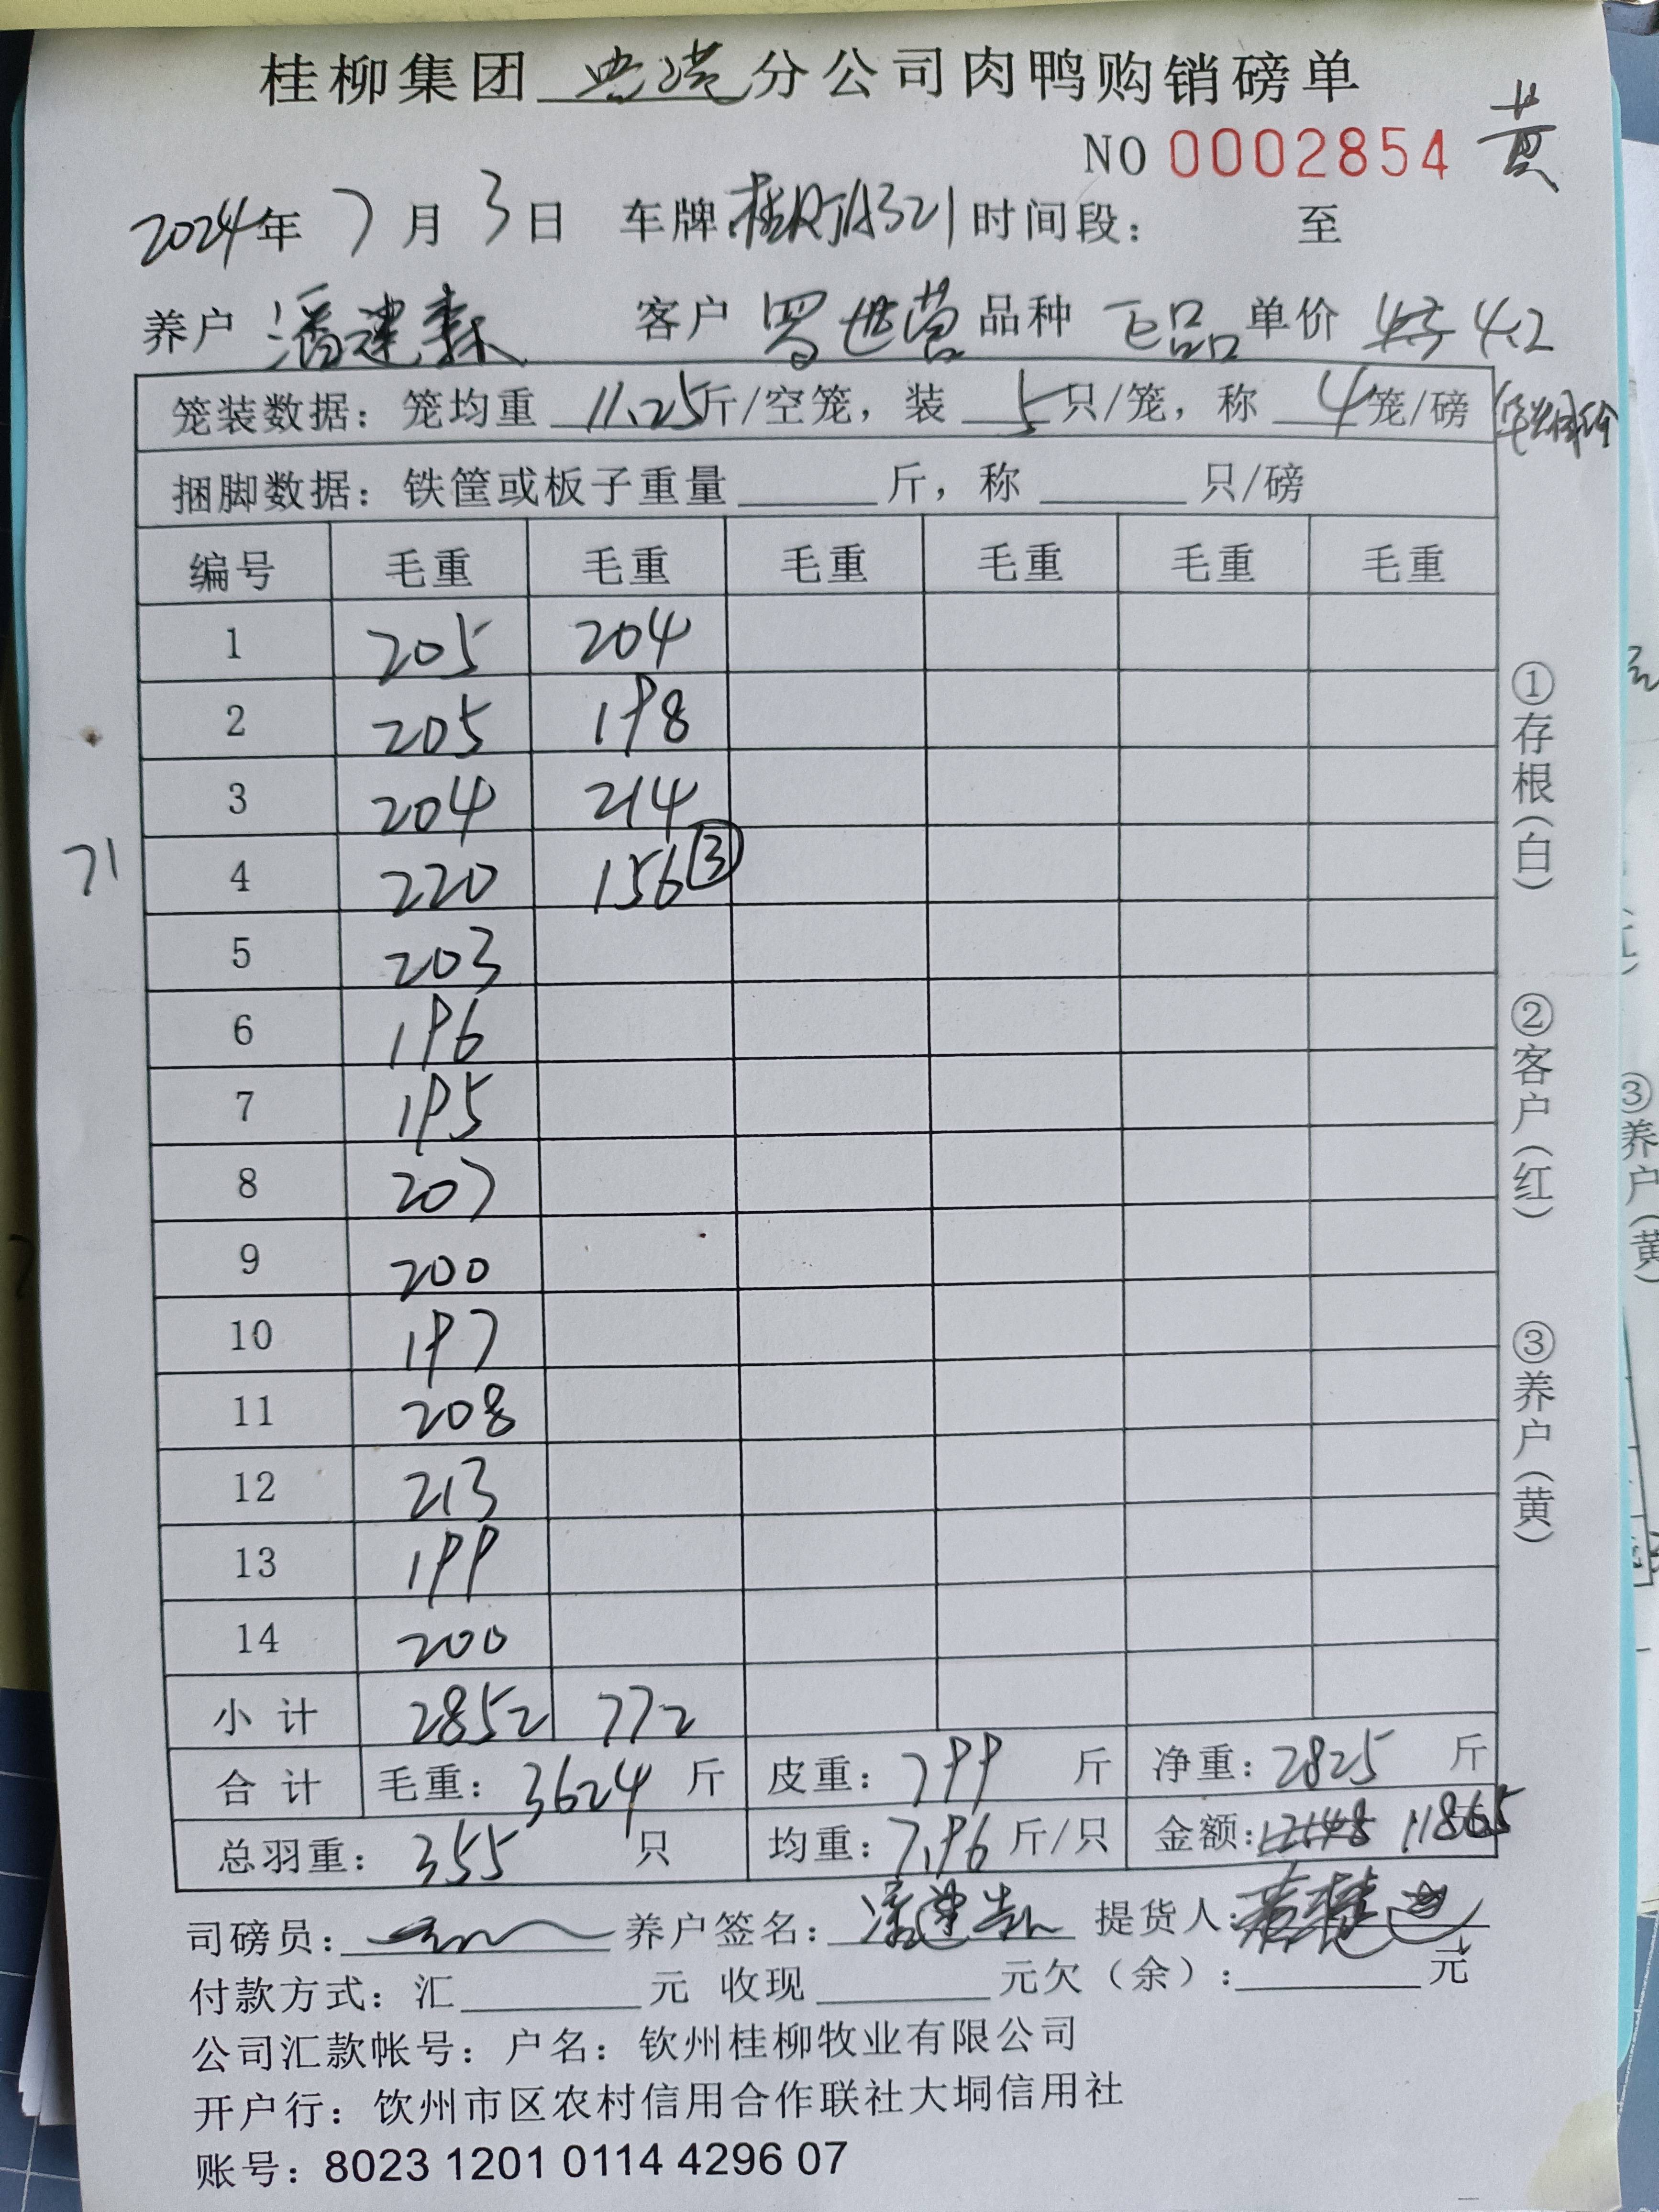 桂柳集团 分公司肉鸭购销磅单
NO 0002854 黄
2024年 7月 3日 车牌:桂R 321 时间段: 至
养户 潘建森 客户 罗世营 品种 正品 单价 4.2
笼装数据: 笼均重 11.25斤/空笼, 装 5只/笼, 称 4笼/磅
捆脚数据: 铁筐或板子重量 斤, 称 只/磅
编号 毛重 毛重 毛重 毛重 毛重 毛重
1 205 204
2 205 198
3 204 214
71 4 220 156 ③
5 203
6 196
7 195
8 207
9 200
10 197
11 208
12 213
13 199
14 200
小计 2852 772
合计 毛重: 3624 斤 皮重: 799 斤 净重: 2825 斤
总羽重: 355 只 均重: 7.96 斤/只 金额: 12148 11865
司磅员: 养户签名: 提货人:
付款方式: 汇 元 收现 元欠(余): 元
公司汇款帐号: 户名: 钦州桂柳牧业有限公司
开户行: 钦州市区农村信用合作联社大垌信用社
账号: 8023 1201 0114 4296 07
①存根(白)
②客户(红)
③养户(黄)
③养户(黄)